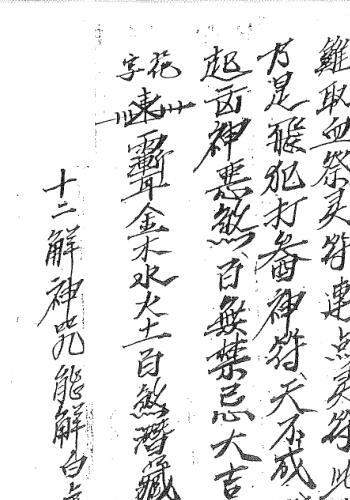 雞取血祭灵符連点灵符此
乃是 犯打 神符天不成
起 神惡煞百無禁忌大吉
花字
東 金木水火土百煞潛藏
十二解神咒能解白虎